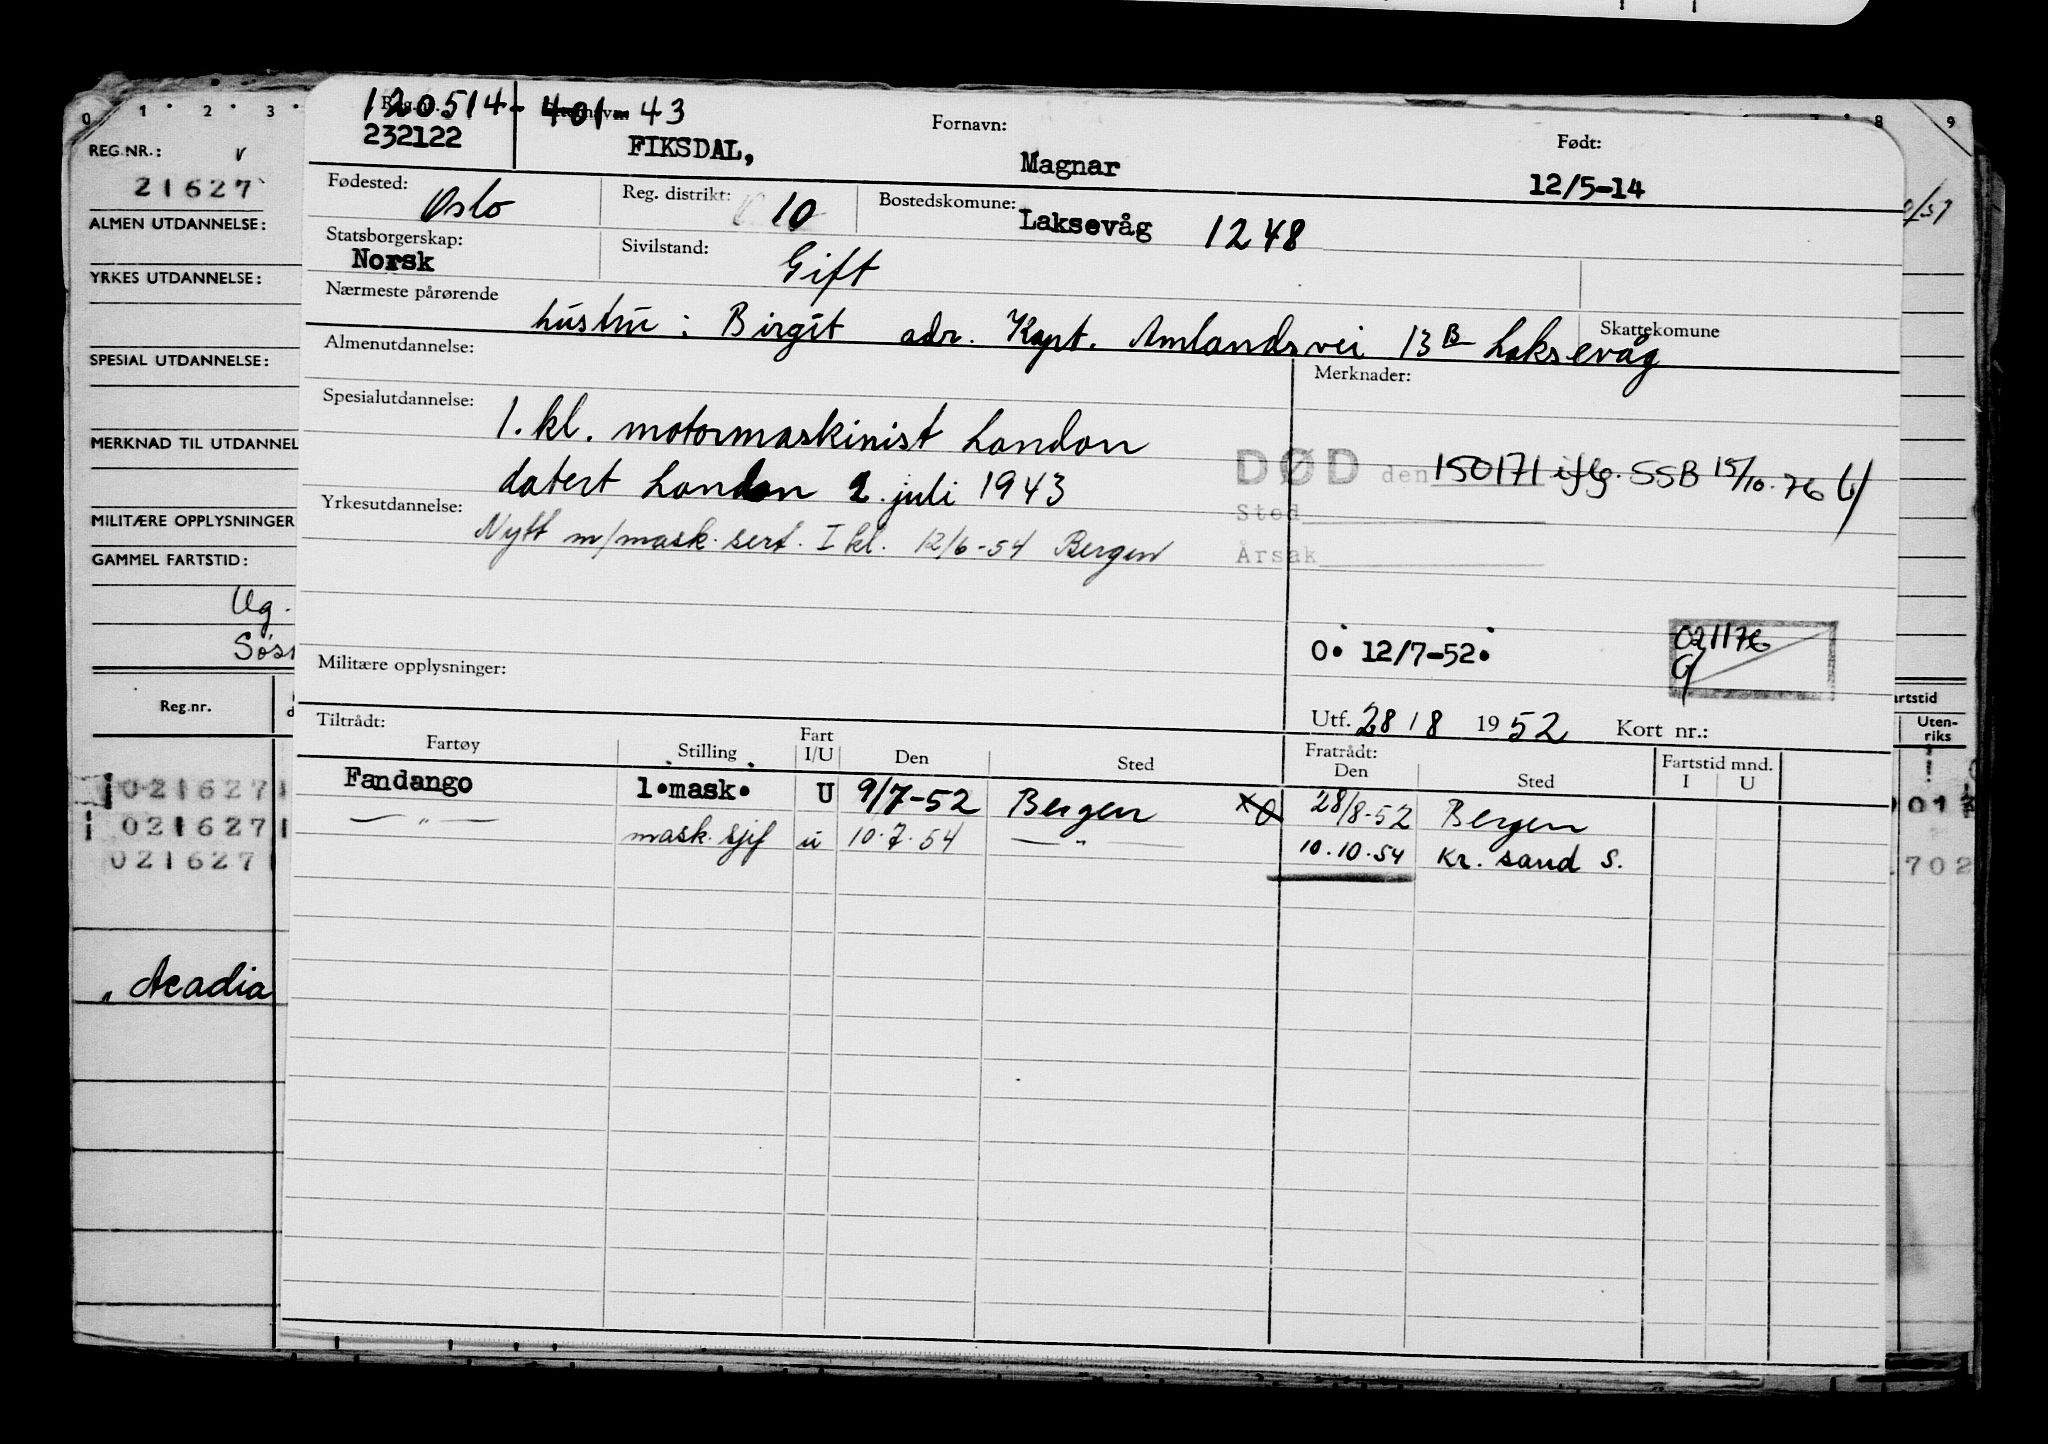 0 1 2 3 8 9
REG.NR.: v
21627
ALMEN UTDANNELSE:
YRKES UTDANNELSE:
SPESIAL UTDANNELSE:
MERKNAD TIL UTDANNEL
MILITÆRE OPPLYSNINGER
GAMMEL FARTSTID:
Ug.
Søs
Reg.nr.
021627
021627
021627
„ Acadia
120514-401-43
232122 FIKSDAL,
Fornavn: Magnar
Født: 12/5-14
Fødested: Oslo
Reg. distrikt: 10
Bostedskomune: Laksevåg 1248
Statsborgerskap: Norsk
Sivilstand: Gift
Nærmeste pårørende
hustru : Birgit adr. Kapt. Amlandsvei 13B Laksevåg
Skattekomune
Almenutdannelse:
Merknader:
Spesialutdannelse: 1. kl. motormaskinist London
datert London 2. juli 1943
DØD den 150171 iflg. SSB 15/10-76
Sted
Årsak
Yrkesutdannelse: Nytt m/mask. sert. I kl. 12/6-54 Bergen
0. 12/7-52.
021176
Militære opplysninger:
Utf. 28/8 1952 Kort nr.:
Tiltrådt: Fratrådt:
Fartøy Stilling Fart I/U Den Sted Den Sted Fartstid mnd. I U
Fandango 1.mask. U 9/7-52 Bergen x 28/8-52 Bergen
— „ — mask. sjef u 10.7.54 — „ — 10.10.54 Kr. sand S.
artstid
Uten-
riks
702